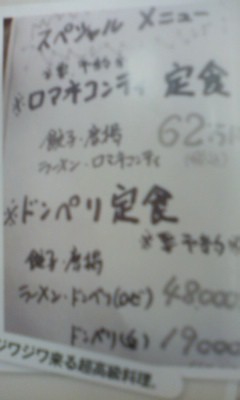 スペシャル メニュー
※要予約
※ロマネコンティ 定食
餃子・唐揚 62
ラーメン・ロマネコンティ
※ドンペリ定食
※要予約
餃子・唐揚
ラーメン・ドンペリ(ロゼ) 48,000
ドンペリ(白) 19000
ジワジワ来る超高級料理。